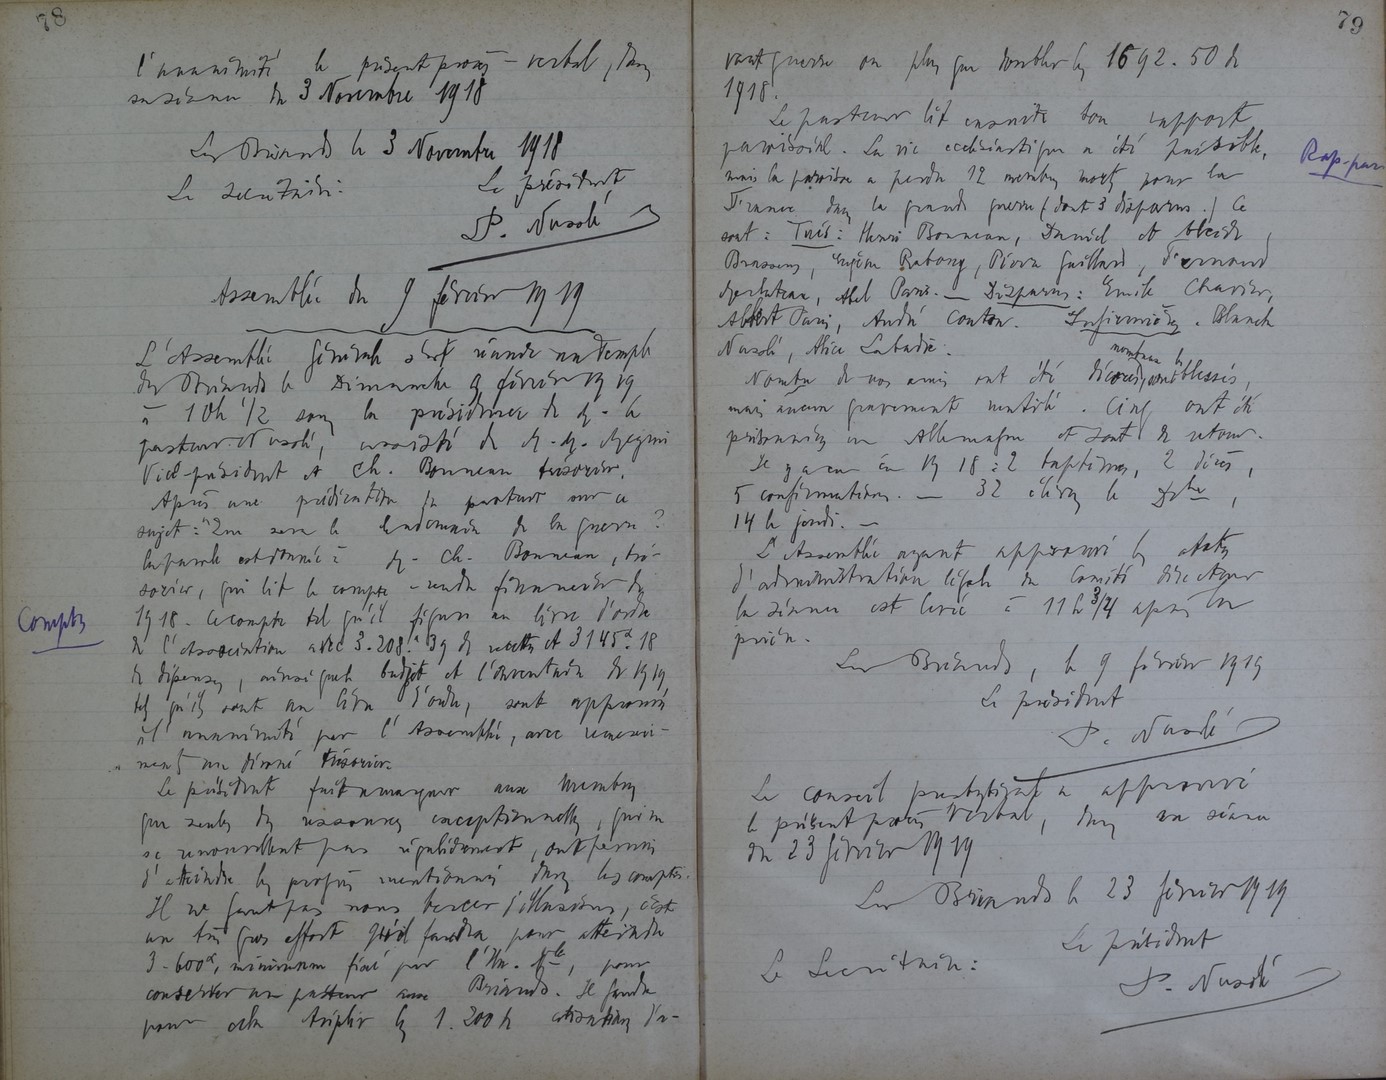 78
l'unanimité le présent procès-verbal, dans
sa séance du 3 Novembre 1918
Les Briands le 3 Novembre 1918
Le secrétaire: Le président
P. Nusslé
Assemblée du 9 février 1919
L'Assemblée Générale s'est réunie au Temple
des Briands le Dimanche 9 février 1919
à 10h 1/2 sous la présidence de M. le
pasteur Nusslé, assisté de M. M.
Vice-président et Ch. Bonneau trésorier.
Après une prédication du pasteur sur ce
sujet: "Que sera le lendemain de la guerre?
la parole est donnée à M. Ch. Bonneau, tré-
sorier, qui lit le compte-rendu financier de
Comptes
1918. Ce compte tel qu'il figure au livre d'ordre
de l'Association avec 3.208.39 de recettes et 3145.18
de dépenses, ainsi que le budget et l'inventaire de 1919
tels qu'ils sont au livre d'ordre, sont approuvés
à l'unanimité par l'Assemblée, avec remercie-
ments au dévoué trésorier.
Le président fait remarquer aux membres
que seules des ressources exceptionnelles, qui ne
se renouvellent pas régulièrement, ont permis
d'atteindre les profits mentionnés dans les comptes.
Il ne faut pas nous bercer d'illusions, c'est
un très gros effort qu'il faudra pour atteindre
3.600, minimum fixé par l'Un. Nle, pour
conserver un pasteur aux Briands. Il faudra
pour cela tripler les 1.200 de cotisations d'a-
79
vant guerre ou plus que doubler les 1692.50 de
1918.
Le pasteur lit ensuite son rapport
paroissial. La vie ecclésiastique a été paisible,
Rap-par
mais la paroisse a perdu 12 membres morts pour la
France dans la grande guerre (dont 3 disparus.) Ce
sont: Tués: Henri Bonneau, Daniel et Alcide
Brassens, Eugène Rabosy, Pierre Guillard, Fernand
Abel Paris. — Disparus: Emile Chavier,
Albert Paris, André Conton. Infirmières. Blanche
Nusslé, Alice Labadie.
nombreux les
Nombre de nos amis ont été décorés, blessés,
mais aucun gravement mutilé. Cinq ont été
prisonniers en Allemagne et sont de retour.
Il y a eu en 1918: 2 baptêmes, 2 décès,
5 confirmations. — 32 élèves le Dche,
14 le jeudi. —
L'Assemblée ayant approuvé les actes
d'administration légale du Comité directeur
la séance est levée à 11h 3/4 après la
prière.
Les Briands, le 9 février 1919
Le président
P. Nusslé
Le conseil presbytéral a approuvé
le présent procès verbal, dans sa séance
du 23 février 1919
Les Briands le 23 février 1919
Le président
Le Secrétaire:
P. Nusslé